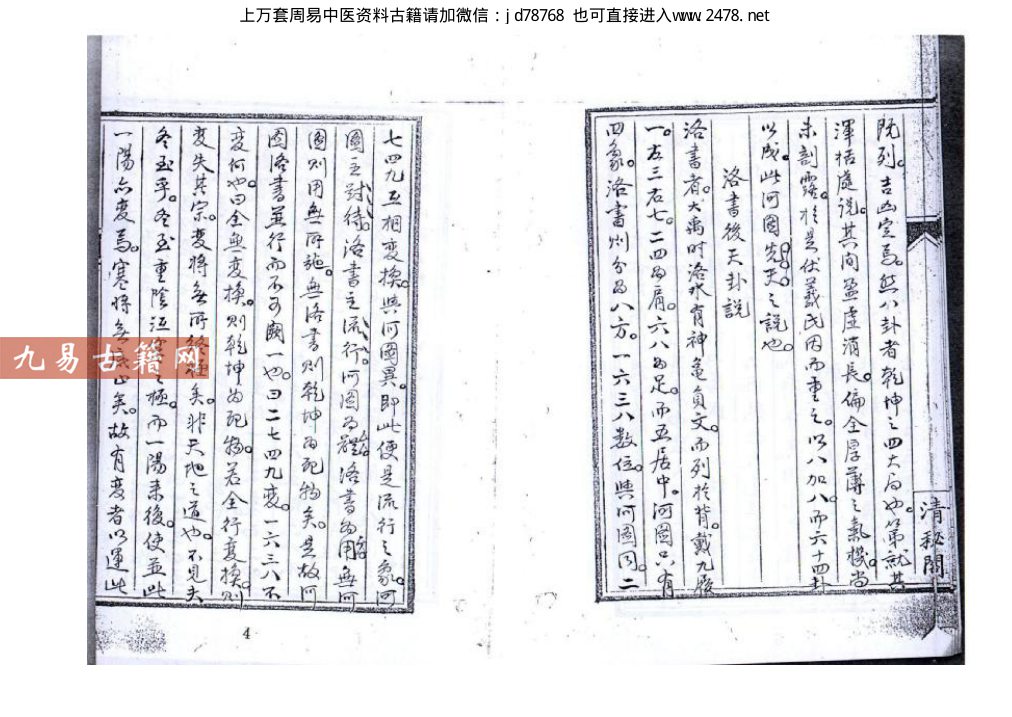 上万套周易中医资料古籍请加微信：jd78768 也可直接进入www.2478.net
既列。吉凶定焉。然八卦者乾坤之四大局也。第就其
渾括處說。其间盈虚消長。偏全厚薄之氣機。尚
未剖露。於是伏羲氏因而重之。以八加八。而六十四卦
以成。此河圖先天之說也。
洛書後天卦説
洛書者。大禹时洛水有神龜負文。而列於背。戴九履
一。左三右七。二四為肩。六八為足。而五居中。河圖只有
四象。洛書则分为八方。一六三八數位。與河圖同。二
清秘閣
七四九互相变換。與河圖異。即此便是流行之象。河
圖主對待。洛書主流行。河圖為體。洛書為用。無河
圖则用無所施。無洛書则乾坤为死物矣。是故河
圖洛書並行而不可闕一也。曰二七四九变。一六三八不
变何也。曰全無变換。则乾坤为死物。若全行变換。则
变失其宗。变將無所终極矣。非天地之道也。不見夫
冬至乎。冬至重陰之極。而一陽来復。使並此
一陽亦变焉。寒將無矣。故有变者以運此
九易古籍网
4